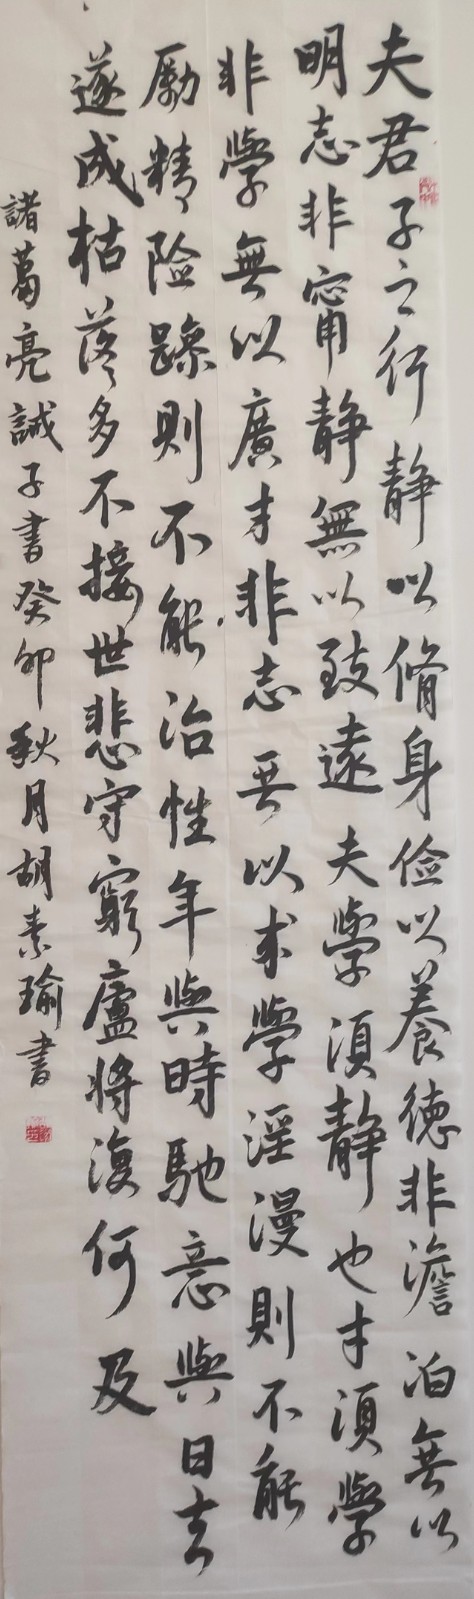 夫君子之行静以脩身俭以養德非澹泊無以
明志非甯静無以致遠夫學須静也才須學
非學無以廣才非志无以求學淫漫則不能
勵精险躁則不能治性年與時馳意與日去
遂成枯落多不接世悲守窮廬将復何及
諸葛亮誡子書癸卯秋月胡素瑜書